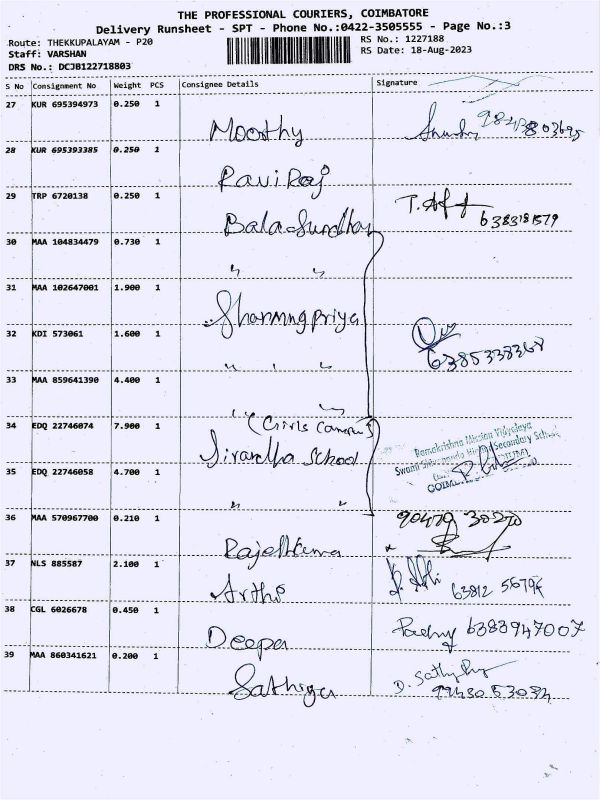 THE PROFESSIONAL COURIERS, COIMBATORE
Delivery Runsheet - SPT - Phone No.:0422-3505555 - Page No.:3
Route: THEKKUPALAYAM - P20
RS No.: 1227188
Staff: VARSHAN
RS Date: 18-Aug-2023
DRS No.: DCJB122718803
S No Consignment No Weight PCS Consignee Details Signature
27 KUR 695394973 0.250 1
Moorthy
28 KUR 695393385 0.250 1
Raviraj
29 TRP 6720138 0.250 1
Balasundhar
30 MAA 104834479 0.730 1
" "
31 MAA 102647001 1.900 1
Shanmugpriya
32 KDI 573061 1.600 1
6385338368
" " "
33 MAA 859641390 4.400 1
" "
34 EDQ 22746074 7.900 1
(Girls Campus)
School
Ramakrishna Mission Vidyalaya
35 EDQ 22746058 4.700 1
" "
36 MAA 570967700 0.210 1
37 NLS 885587 2.100 1
Arthi
38 CGL 6026678 0.450 1
Deepa 6383947007
39 MAA 860341621 0.200 1
Sathiya
D. Sathya